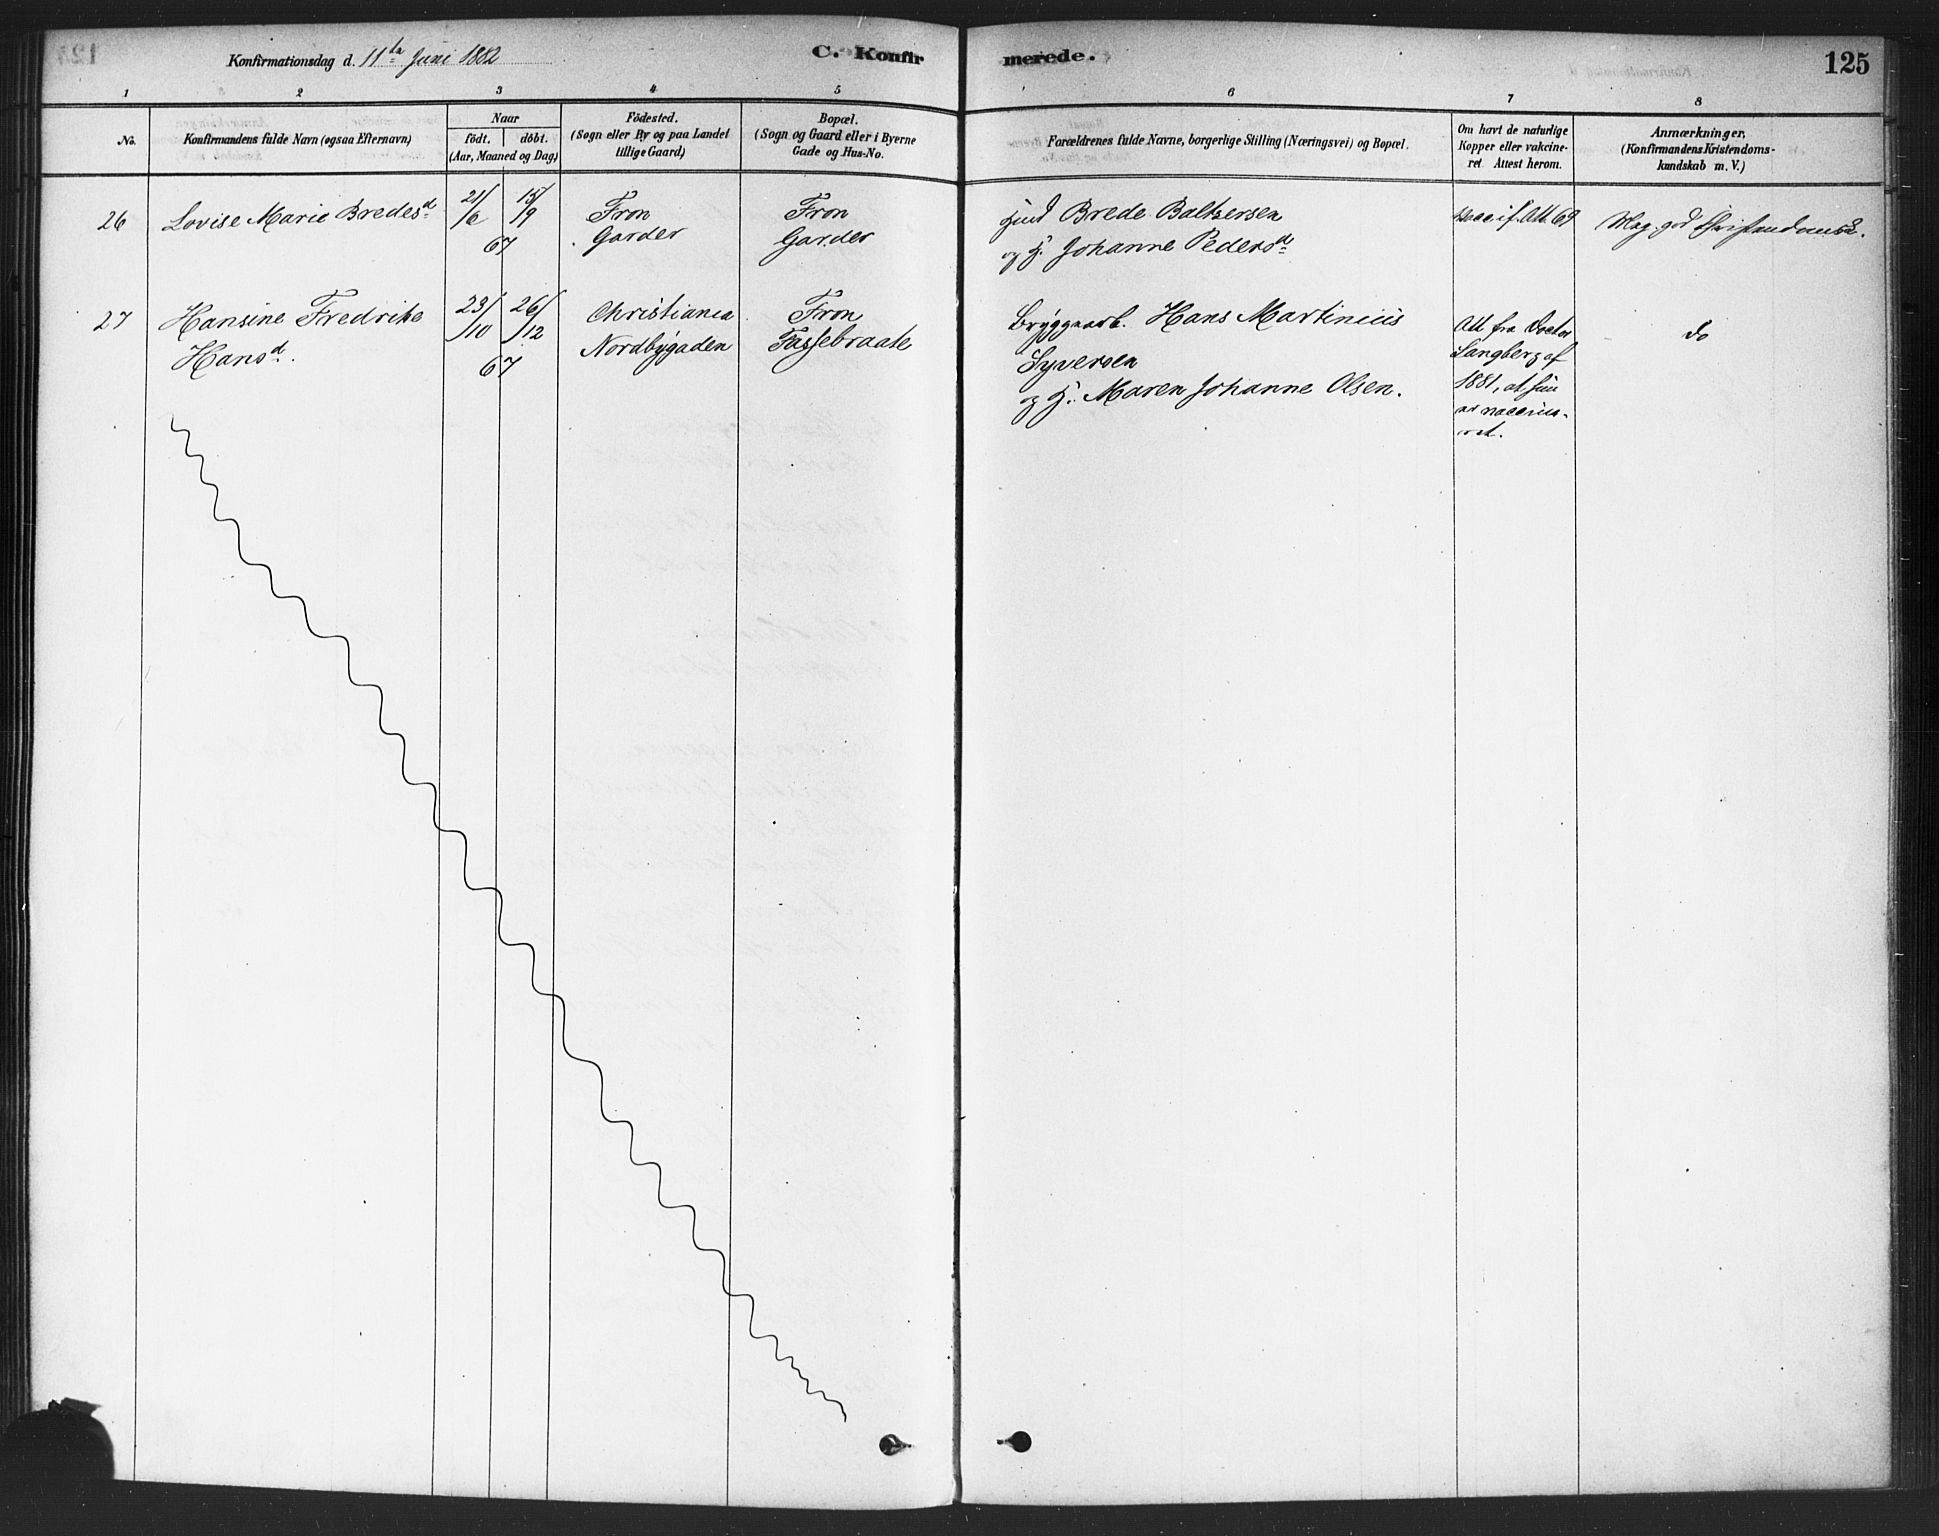 Konfirmationsdag d. 11te Juni 1882
C. Konfirmerede.
125
1 2 3 4 5 6 7 8
No.
Konfirmandens fulde Navn (ogsaa Efternavn)
Naar
födt. döbt.
(Aar, Maaned og Dag)
Födested.
(Sogn eller By og paa Landet
tillige Gaard)
Bopæl.
(Sogn og Gaard eller i Byerne
Gade og Hus-No.
Forældrenes fulde Navne, borgerlige Stilling (Næringsvei) og Bopæl.
Om havt de naturlige
Kopper eller vakcine-
ret. Attest herom.
Anmærkninger,
(Konfirmandens Kristendoms-
kundskab m. V.)
26
Lovise Marie Bredesd.
21/6 15/9
67
Fron
Garder
Fron
Garder
Brede Baltzersen
og H. Johanne Pedersd.
vacc. if. Att. 69
Meg. god Christendomsk.
27
Hansine Fredrikke
Hansd.
23/10 26/12
67
Christiania
Nordbygaden
Fron
Fassebraate
Bryggearb. Hans Martinius
Syversen
og H. Maren Johanne Olsen.
Att fra Doctor
Langberg af
1881, at hun
er vaccine-
ret.
do